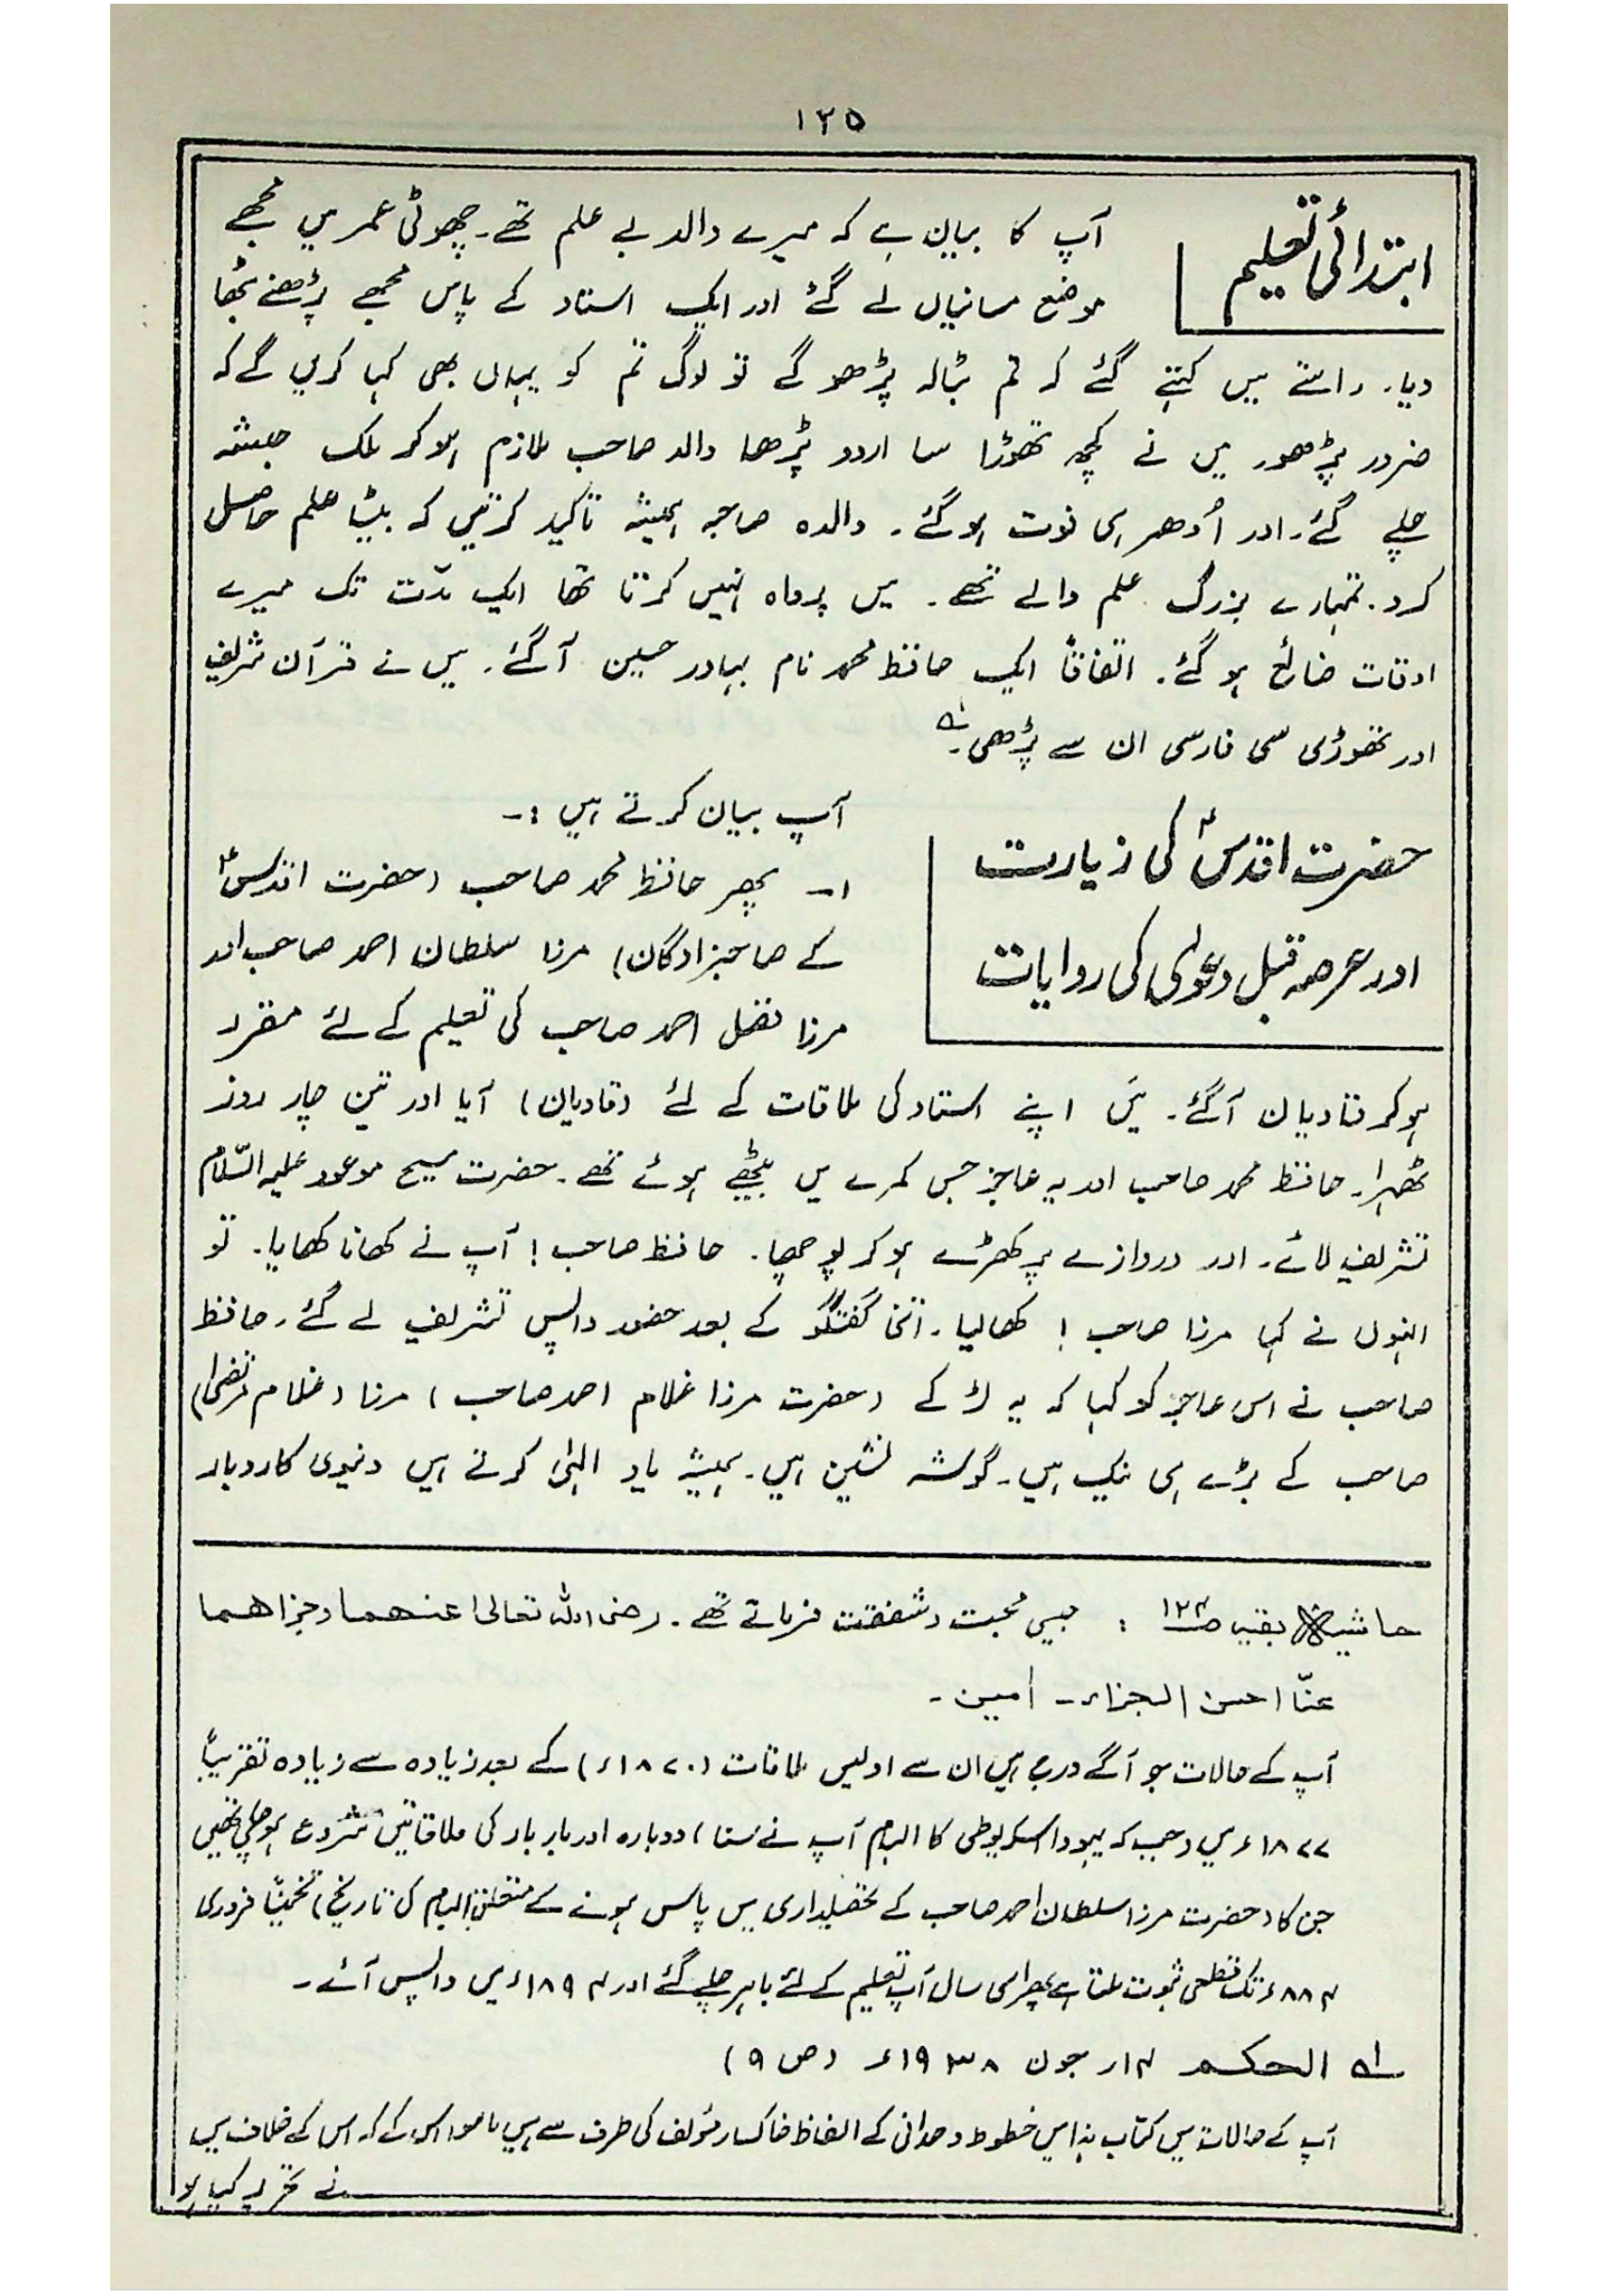 ۱۲۵
ابتدائی تعلیم
آپ کا بیان ہے کہ میرے والد بے علم تھے۔ چھوٹی عمر میں مجھے
موضع مسانیاں لے گئے اور ایک استاد کے پاس مجھے پڑھنے بٹھا
دیا۔ راستے میں کہتے گئے کہ تم بٹالہ پڑھو گے تو لوگ تم کو یہاں بھی کہا کریں گے کہ
ضرور پڑھو۔ میں نے کچھ تھوڑا سا اردو پڑھا والد صاحب ملازم ہو کر ملک حبشہ
چلے گئے۔ اور اُدھر ہی فوت ہو گئے۔ والدہ صاحبہ ہمیشہ تاکید کرتیں کہ بیٹا علم حاصل
کرو۔ تمہارے بزرگ علم والے تھے۔ میں پرواہ نہیں کرتا تھا ایک مدّت تک میرے
اوقات ضائع ہو گئے۔ اتفاقاً ایک حافظ محمد نام بہادر حسین آ گئے۔ میں نے قرآن شریف
اور تھوڑی سی فارسی ان سے پڑھی۔ لہ
حضرت اقدسؑ کی زیارت
اور عرصہ قبل دعویٰ کی روایات
آپ بیان کرتے ہیں :۔
۱۔ پھر حافظ محمد صاحب (حضرت اقدسؑ
کے صاحبزادگان) مرزا سلطان احمد صاحب اور
مرزا فضل احمد صاحب کی تعلیم کے لئے مقرر
ہو کر قادیان آ گئے۔ میَں اپنے استاد کی ملاقات کے لئے (قادیان) آیا اور تین چار روز
ٹھہرا۔ حافظ محمد صاحب اور یہ عاجز جس کمرے میں بیٹھے ہوئے تھے۔ حضرت مسیح موعود علیہ السّلام
تشریف لائے۔ اور دروازے پر کھڑے ہو کر پوچھا۔ حافظ صاحب! آپ نے کھانا کھایا۔ تو
انہوں نے کہا مرزا صاحب! کھا لیا۔ اتنی گفتگو کے بعد حضور واپس تشریف لے گئے۔ حافظ
صاحب نے اس عاجز کو کہا کہ یہ لڑکے (حضرت مرزا غلام احمد صاحب) مرزا (غلام مرتضیٰ)
صاحب کے بڑے ہی نیک ہیں۔ گوشہ نشین ہیں۔ ہمیشہ یاد الٰہی کرتے ہیں دنیوی کاروبار
حاشیہ بقیہ ص۱۲۴ : جیسی محبت و شفقت فرماتے تھے۔ رضی اللہ تعالیٰ عنہما وجزاھما
عنّا احسن الجزاء۔ اٰمین۔
آپ کے حالات جو آگے درج ہیں ان سے اولیں ملاقات (۱۸۷۰ء) کے بعد زیادہ سے زیادہ تقریباً
۱۸۷۷ء میں (جب کہ یہودا اسکریوطی کا الہام آپ نے سنا) دوبارہ اور بار بار کی ملاقاتیں شروع ہو چکی تھیں
جن کا (حضرت مرزا سلطان احمد صاحب کے تحصیلداری میں پاس ہونے کے متعلق الہام کی تاریخ) تخمیناً فروری
۸۸۴ء تک قطعی ثبوت ملتا ہے پھر اسی سال آپ تعلیم کے لئے باہر چلے گئے اور ۱۸۹۴ء میں واپس آئے۔
لہ الحکم ۱۴؍ جون ۱۹۳۸ء (ص ۹)
آپ کے حالات میں کتاب ہذا میں خطوط وحدانی کے الفاظ خاکسار مؤلف کی طرف سے ہیں ماسوا اس کے کہ اس کے خلاف میں
نے تحریر کیا ہو